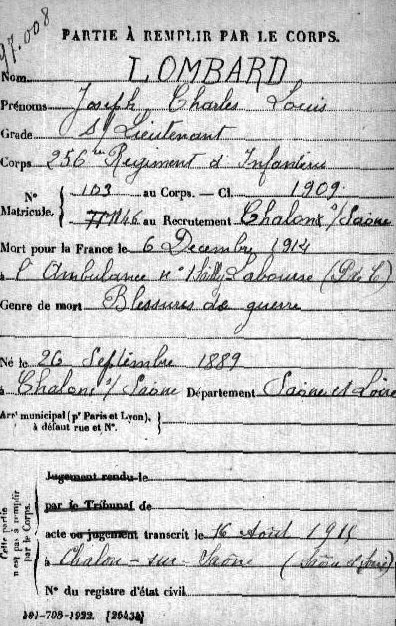 97.008
PARTIE À REMPLIR PAR LE CORPS.
Nom LOMBARD
Prénoms Joseph Charles Louis
Grade S/ Lieutenant
Corps 256e Régiment d'Infanterie
N° Matricule. { 103 au Corps. — Cl. 1909.
1146 au Recrutement Chalon s/ Saône
Mort pour la France le 6 Décembre 1914
à l'Ambulance n° 1 Sailly Labourse (P de C)
Genre de mort Blessures de guerre
Né le 26 Septembre 1889
à Chalon s/ Saône Département Saône et Loire
Arrt municipal (pr Paris et Lyon), à défaut rue et N°.
Cette partie n'est pas à remplir par le Corps.
Jugement rendu le
par le Tribunal de
acte ou jugement transcrit le 16 Août 1915
à Chalon-sur-Saône (Saône et Loire)
N° du registre d'état civil
101-708-1922. [26434]